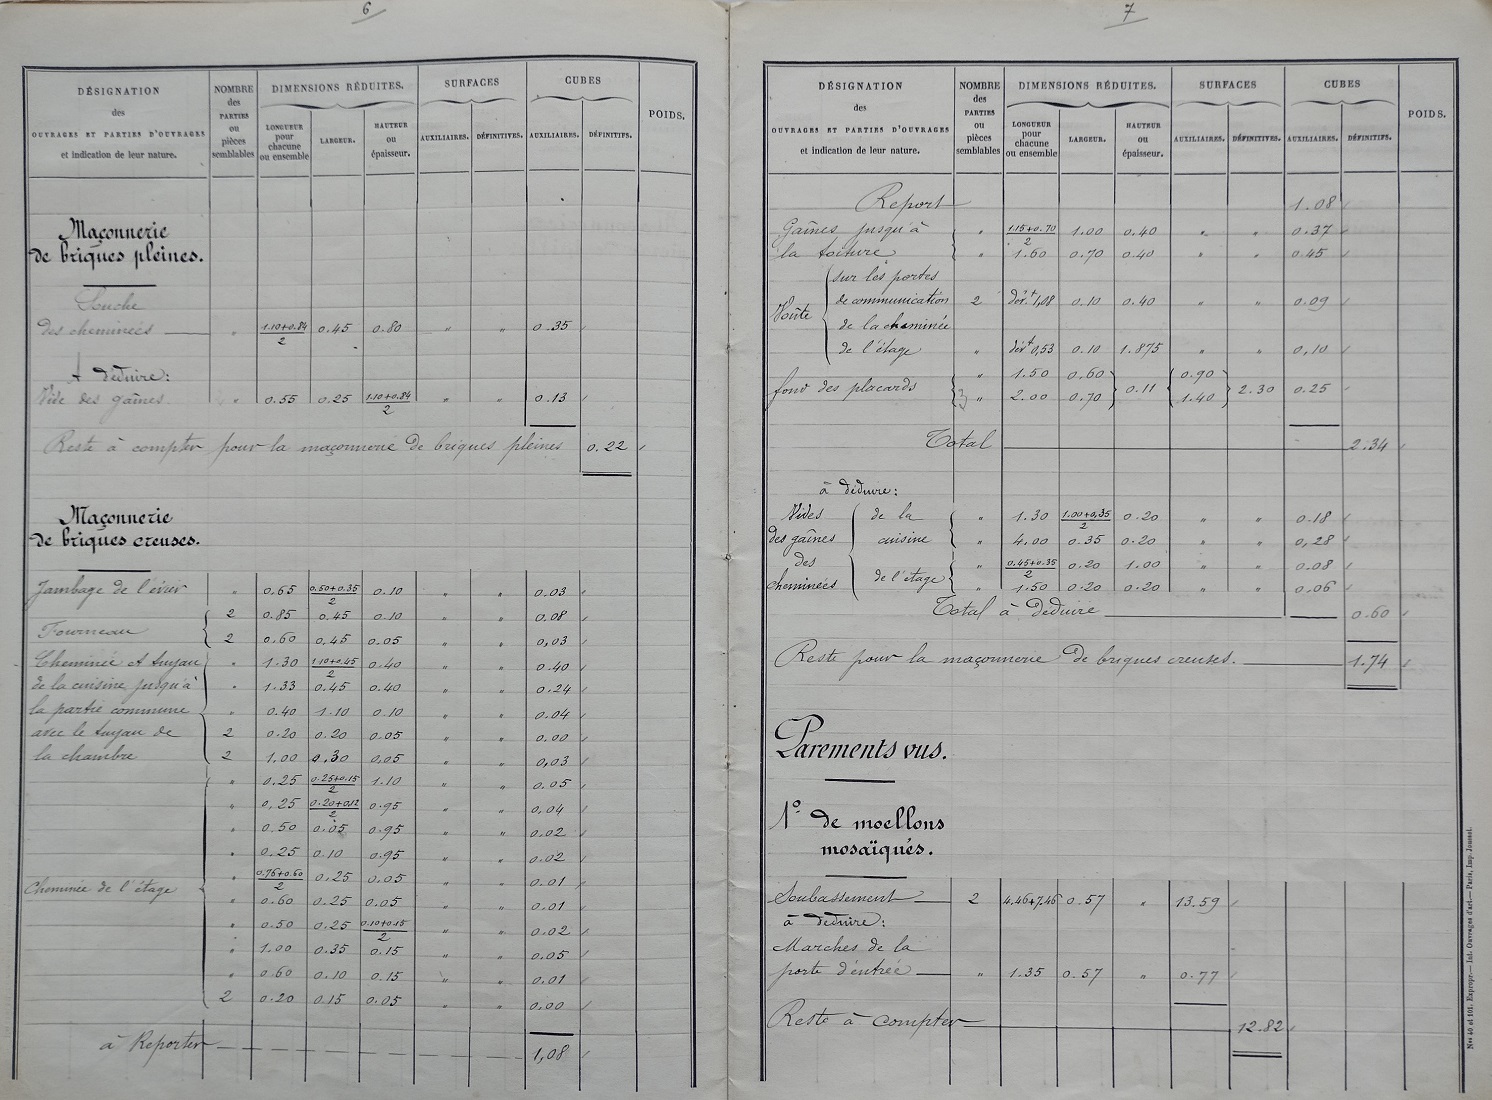 6
DÉSIGNATION des OUVRAGES ET PARTIES D'OUVRAGES et indication de leur nature. NOMBRE des PARTIES ou pièces semblables DIMENSIONS RÉDUITES. LONGUEUR pour chacune ou ensemble LARGEUR. HAUTEUR ou épaisseur. SURFACES AUXILIAIRES. DÉFINITIVES. CUBES AUXILIAIRES. DÉFINITIFS. POIDS.
Maçonnerie
de briques pleines.
Souche
des cheminées " 1.10+0.84/2 0.45 0.80 " " 0.35
A déduire:
Vide des gaînes " 0.55 0.25 1.10+0.84/2 " " 0.13
Reste à compter pour la maçonnerie de briques pleines 0.22
Maçonnerie
de briques creuses.
Jambage de l'évier " 0.65 0.50+0.35/2 0.10 " " 0.03
2 0.85 0.45 0.10 " " 0.08
Fourneau
2 0.60 0.45 0.05 " " 0,03
Cheminée et tuyau " 1.30 1.10+0.45/2 0.40 " " 0.40
de la cuisine jusqu'à " 1.33 0.45 0.40 " " 0.24
la partie commune " 0.40 1.10 0.10 " " 0.04
avec le tuyau de 2 0.20 0.20 0.05 " " 0.00
la chambre 2 1,00 0.30 0.05 " " 0,03
" 0.25 0.25+0.15/2 1.10 " " 0.05
" 0,25 0.20+0.12/2 0.95 " " 0,04
" 0.50 0.05 0.95 " " 0.02
" 0.25 0.10 0.95 " " 0.02
" 0.76+0.60/2 0.25 0.05 " " 0.01
Cheminée de l'étage
" 0.60 0.25 0.05 " " 0.01
" 0.50 0.25 0.10+0.15/2 " " 0.02
" 1.00 0.35 0.15 " " 0.05
" 0.60 0.10 0.15 " " 0.01
2 0.20 0.15 0.05 " " 0.00
à Reporter 1,08
7
DÉSIGNATION des OUVRAGES ET PARTIES D'OUVRAGES et indication de leur nature. NOMBRE des PARTIES ou pièces semblables DIMENSIONS RÉDUITES. LONGUEUR pour chacune ou ensemble LARGEUR. HAUTEUR ou épaisseur. SURFACES AUXILIAIRES. DÉFINITIVES. CUBES AUXILIAIRES. DÉFINITIFS. POIDS.
Report 1.08
Gaînes jusqu'à " 1.15+0.70/2 1.00 0.40 " " 0.37
la toiture " 1.60 0.70 0.40 " " 0.45
Voûte
sur les portes
de communication 2 dév.t 1,08 0.10 0.40 " " 0.09
de la cheminée
de l'étage " dév.t 0,53 0.10 1.875 " " 0,10
" 1.50 0.60 0.90
fond des placards 0.11 2.30 0.25
" 2.00 0.70 1.40
Total 2.34
à déduire:
Vides de la " 1.30 1.00+0,35/2 0.20 " " 0.18
des gaînes cuisine " 4,00 0.35 0.20 " " 0,28
des " 0.45+0.35/2 0.20 1.00 " " 0.08
cheminées de l'étage " 1.50 0.20 0.20 " " 0,06
Total à déduire 0.60
Reste pour la maçonnerie de briques creuses. 1.74
Parements vus.
1° de moellons
mosaïqués.
Soubassement 2 4.46+7,46 0.57 " 13.59
à déduire:
Marches de la
porte d'entrée " 1.35 0.57 " 0.77
Reste à compter 12.82
Nos 40 et 101. Expropr.— Int. Ouvrages d'art.— Paris, Imp. Jousset.